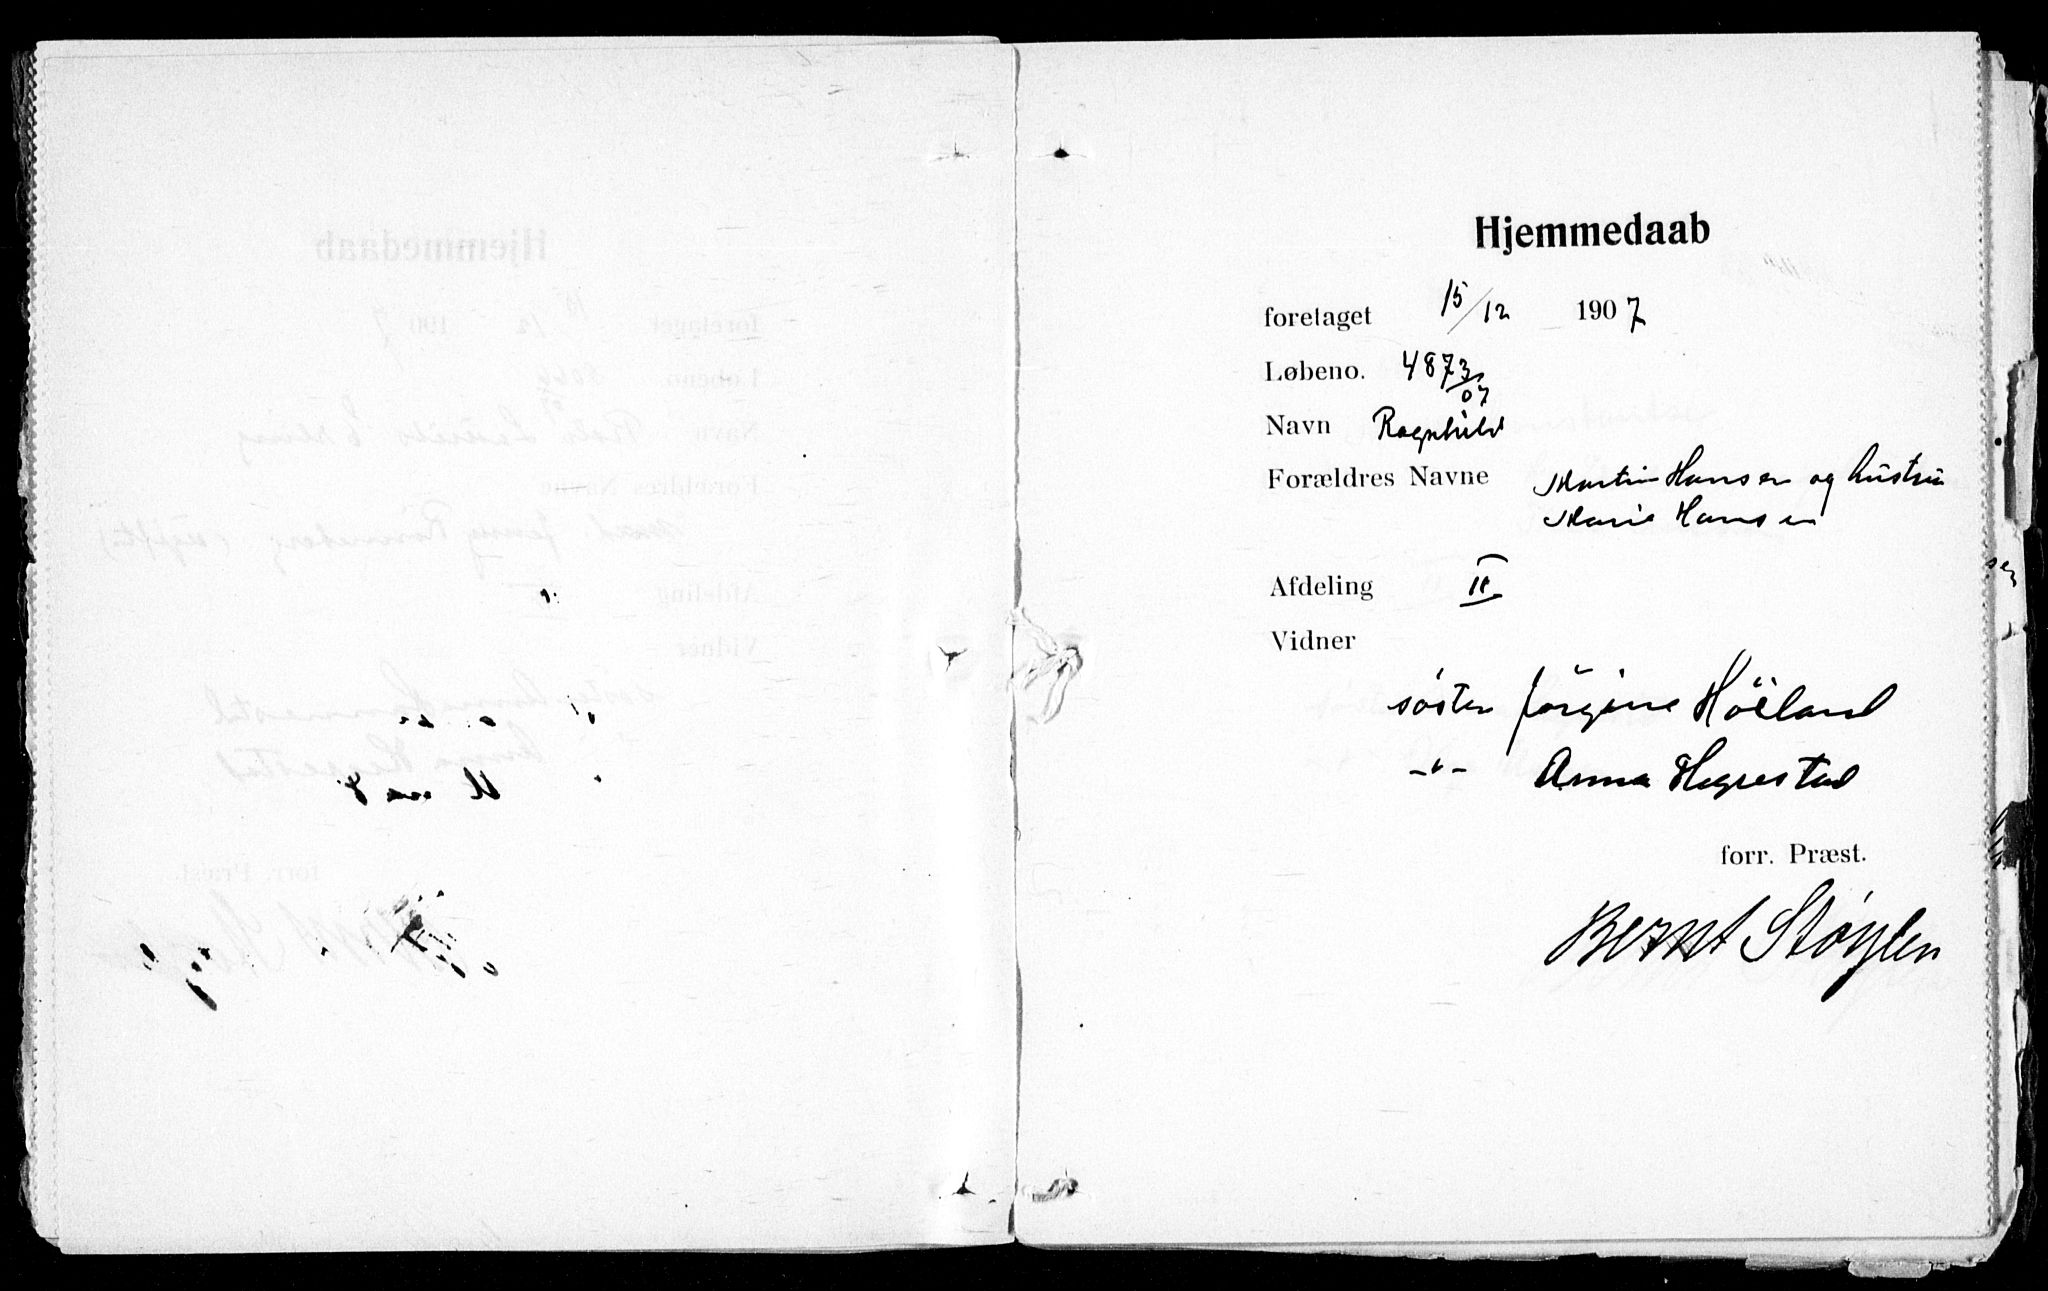 Hjemmedaab
foretaget 15/12 1907
Løbeno. 4873/07
Navn Ragnhild
Forældres Navne Martin Hansen og hustru
Marie Hansen
Afdeling II
Vidner
søster Jørgine Höiland
-"- Anna Hegrestad
forr. Præst.
Bernt Støylen